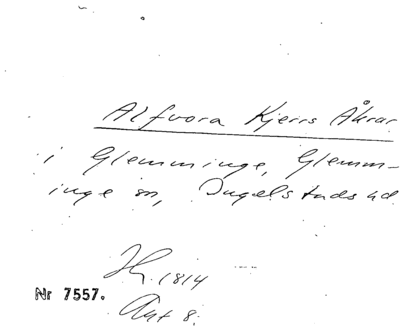 Alfvora Kjerrs Åkrar
i Glemminge, Glemm-
inge sn, Ingelstads hd
Hr. 1814
Nr 7557.
Akt 8.